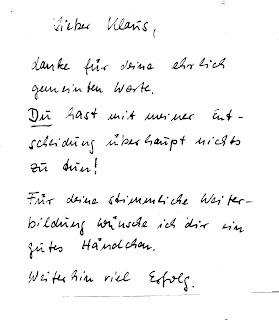 Lieber Klaus,
danke für deine ehrlich
gemeinten Worte.
Du hast mit meiner Ent-
scheidung überhaupt nichts
zu tun!
Für deine stimmliche Weiter-
bildung wünsche ich dir ein
gutes Händchen.
Weiterhin viel Erfolg.